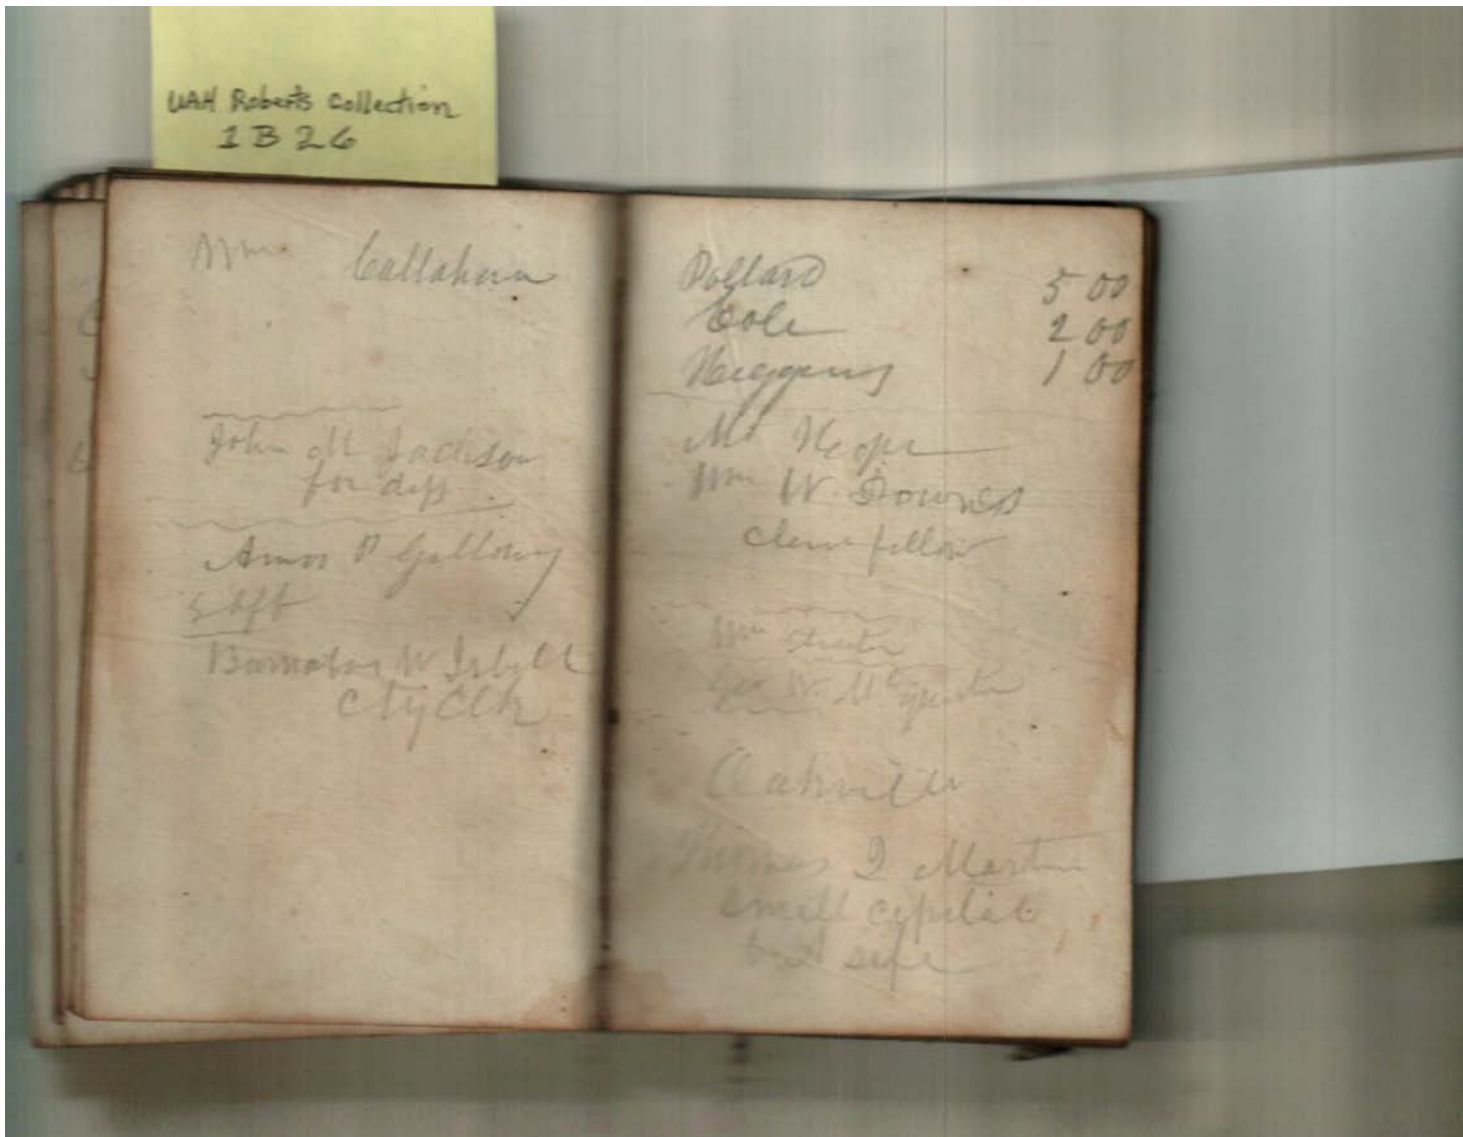 UAH Roberts Collection
1 B 26
Wm Callahan
John M Jackson
for dep
Amos P Galloway
Barnabas W Isbell
Cty Clk
Pollard 5 00
Cole 2 00
Higgens 1 00
Mr
Wm W. Downes
clever fellow
Wm Streeter
Geo W. Mc
Oakville
Thomas D Martin
small capital
but safe